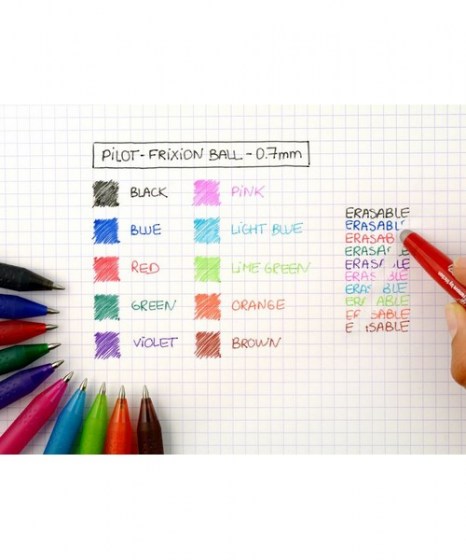 PiLOT - FRiXiON BALL - 0.7mm
BLACK
BLUE
RED
GREEN
ViOLET
PiNK
LiGHT BLUE
LiME GREEN
ORANGE
BROWN
ERASABLE
ERASABLE
ERASAB
ERASA
ERASA LE
ERAS BLE
ERA BLE
ERA ABLE
ER SABLE
E iSABLE